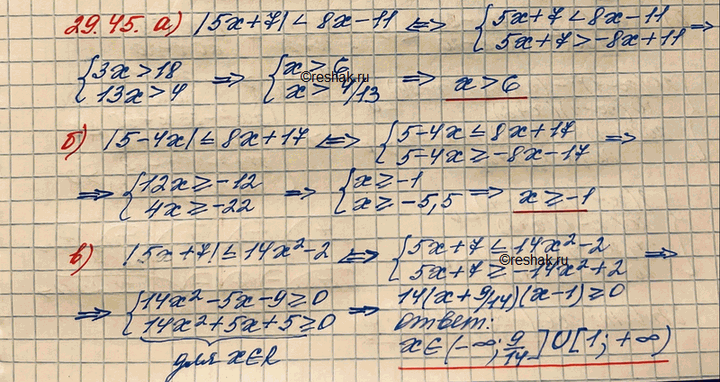 29.45. а) |5x+7| < 8x-11 <=> {5x+7 < 8x-11
5x+7 > -8x+11 =>
{3x > 18
13x > 4 => {x > 6
x > 4/13 => x > 6
©reshak.ru
б) |5-4x| ≤ 8x+17 <=> {5-4x ≤ 8x+17
5-4x ≥ -8x-17 =>
=> {12x ≥ -12
4x ≥ -22 => {x ≥ -1
x ≥ -5,5 => x ≥ -1
в) |5x+7| ≤ 14x²-2 <=> {5x+7 ≤ 14x²-2
5x+7 ≥ -14x²+2 =>
©reshak.ru
=> {14x²-5x-9 ≥ 0
14x²+5x+5 ≥ 0 => 14(x+9/14)(x-1) ≥ 0
для x∈R
ответ:
x∈(-∞; 9/14]∪[1; +∞)